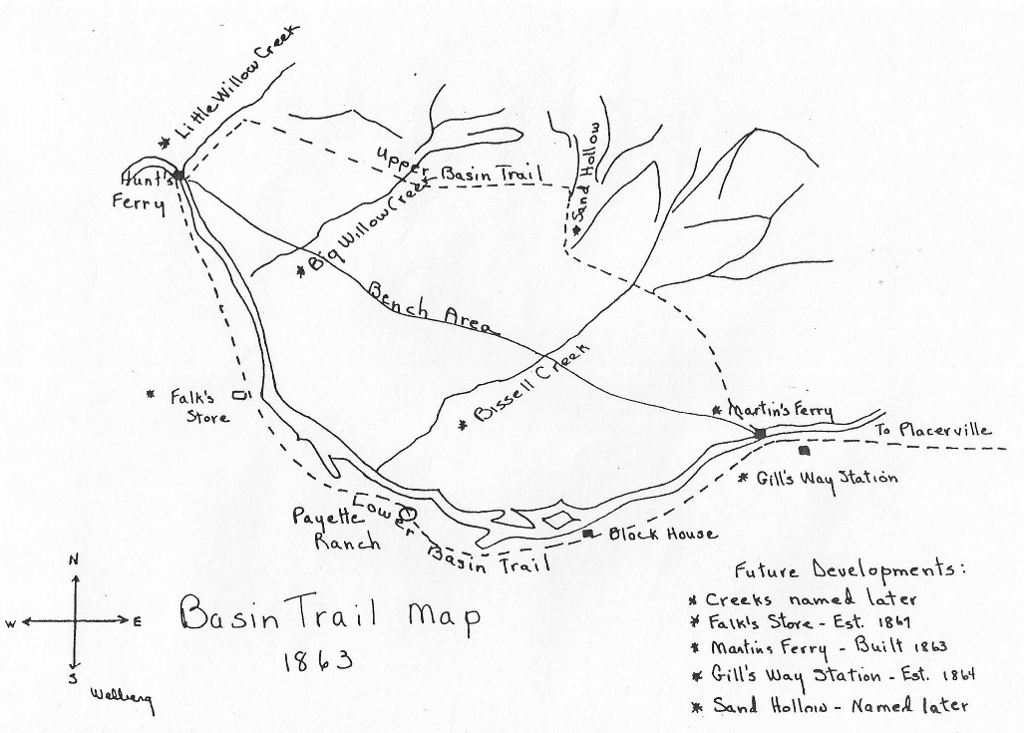 * Little Willow Creek
Hunt's
Ferry
Upper
Basin Trail
* Sand Hollow
* Big Willow Creek
Bench Area
* Bissell Creek
* Falk's
Store
* Martin's Ferry
To Placerville
* Gill's Way Station
Payette
Ranch
Lower
Basin Trail
Block House
N
W
E
S
Basin Trail Map
1863
Wellberg
Future Developments:
* Creeks named later
* Falk's Store - Est. 1867
* Martins Ferry - Built 1863
* Gill's Way Station - Est. 1864
* Sand Hollow - Named later